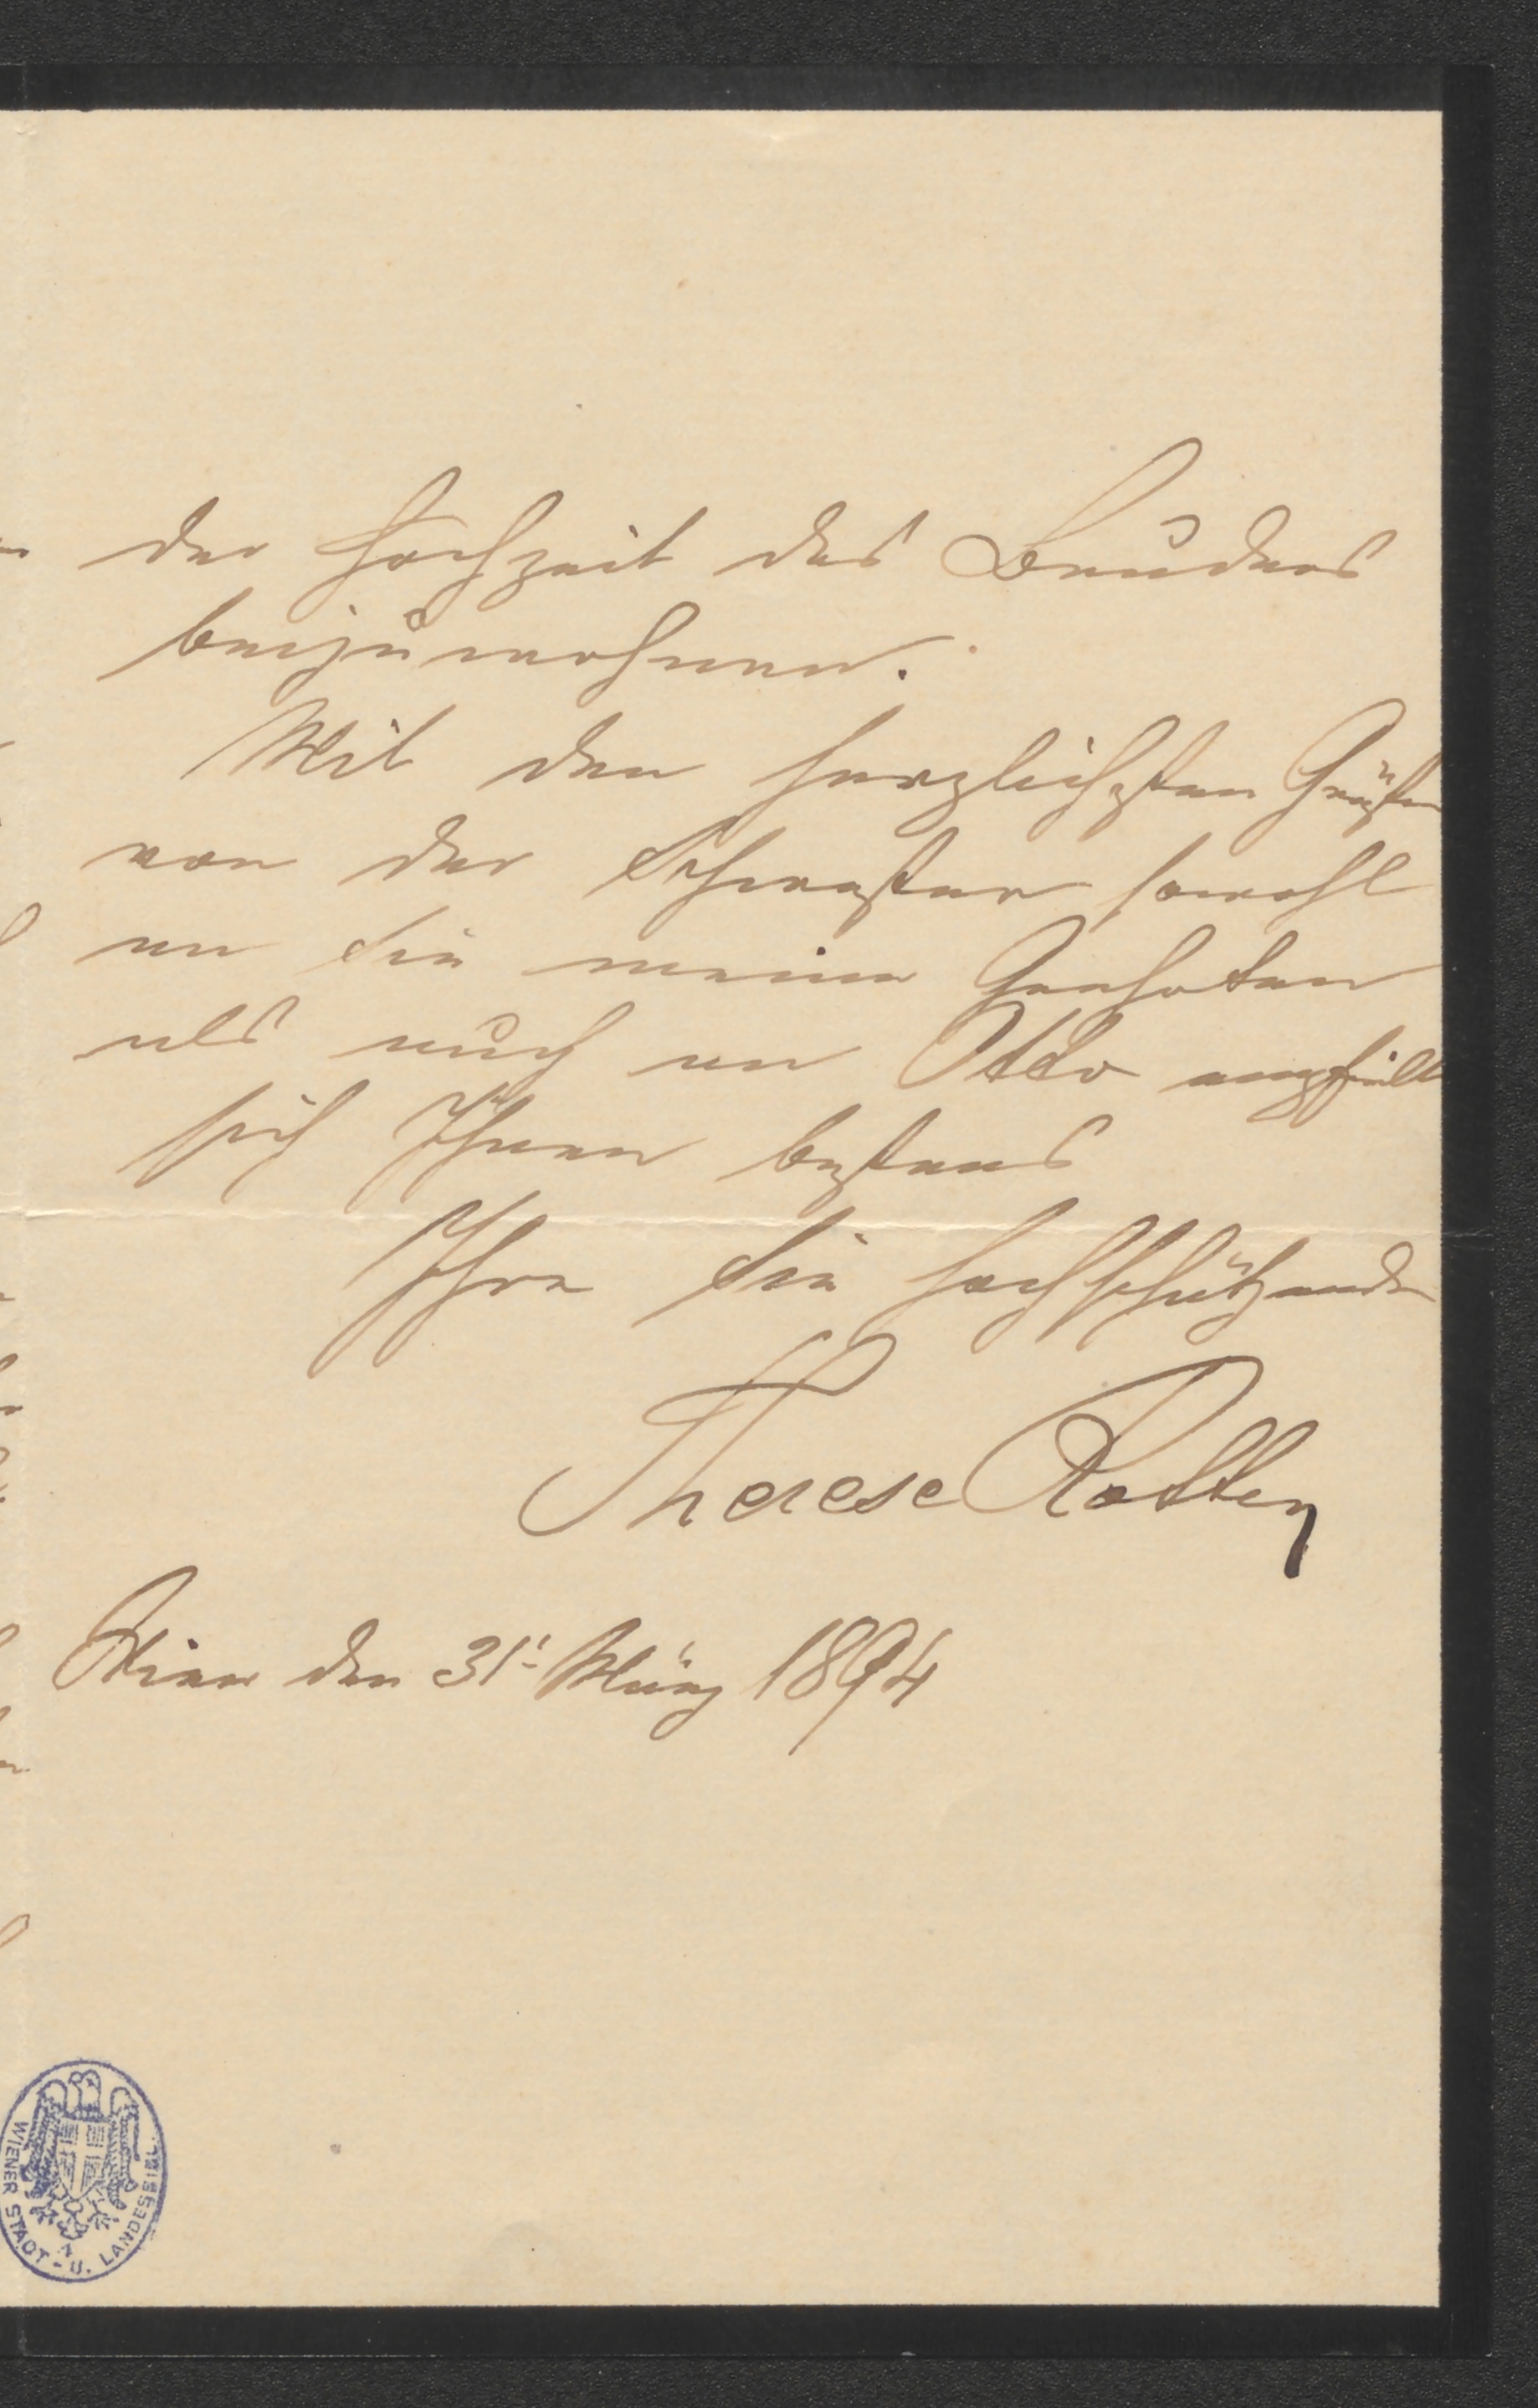 der Hochzeit des Bruders
beizuwohnen.
Mit den herzlichsten Grüßen
von der Schwester sowohl
an Sie meine Geehrten
als auch an Otto empfielt
sich Ihnen bestens
Ihre Sie hochschätzende
Therese Rotter
Wien den 31. März 1894
WIENER STADT - U. LANDESBIBL.